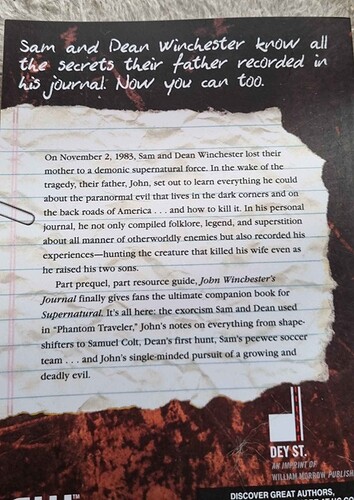 Sam and Dean Winchester know all
the secrets their father recorded in
his journal. Now you can too.
On November 2, 1983, Sam and Dean Winchester lost their
mother to a demonic supernatural force. In the wake of the
tragedy, their father, John, set out to learn everything he could
about the paranormal evil that lives in the dark corners and on
the back roads of America . . . and how to kill it. In his personal
journal, he not only compiled folklore, legend, and superstition
about all manner of otherworldly enemies but also recorded his
experiences—hunting the creature that killed his wife even as
he raised his two sons.
Part prequel, part resource guide, John Winchester's
Journal finally gives fans the ultimate companion book for
Supernatural. It's all here: the exorcism Sam and Dean used
in "Phantom Traveler," John's notes on everything from shape-
shifters to Samuel Colt, Dean's first hunt, Sam's peewee soccer
team . . . and John's single-minded pursuit of a growing and
deadly evil.
DEY ST.
AN IMPRINT OF
WILLIAM MORROW PUBLISH
DISCOVER GREAT AUTHORS,